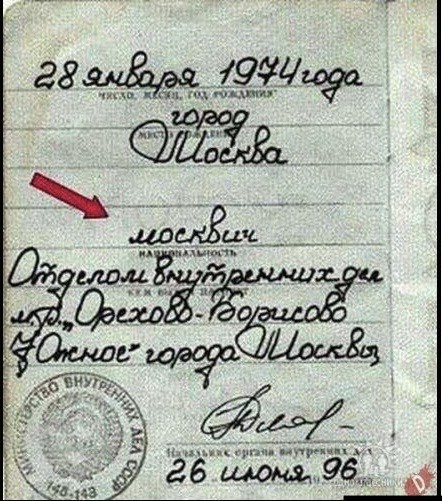 28 января 1974 года
ЧИСЛО, МЕСЯЦ, ГОД РОЖДЕНИЯ
город
МЕСТО РОЖДЕНИЯ
Москва
москвич
НАЦИОНАЛЬНОСТЬ
Отделом внутренних дел
КЕМ ВЫДАН ПАСПОРТ
мкр. „Орехово-Борисово
Южное" города Москвы
МИНИСТЕРСТВО ВНУТРЕННИХ ДЕЛ СССР
148-143
Начальник органа внутренних дел
26 июня 96